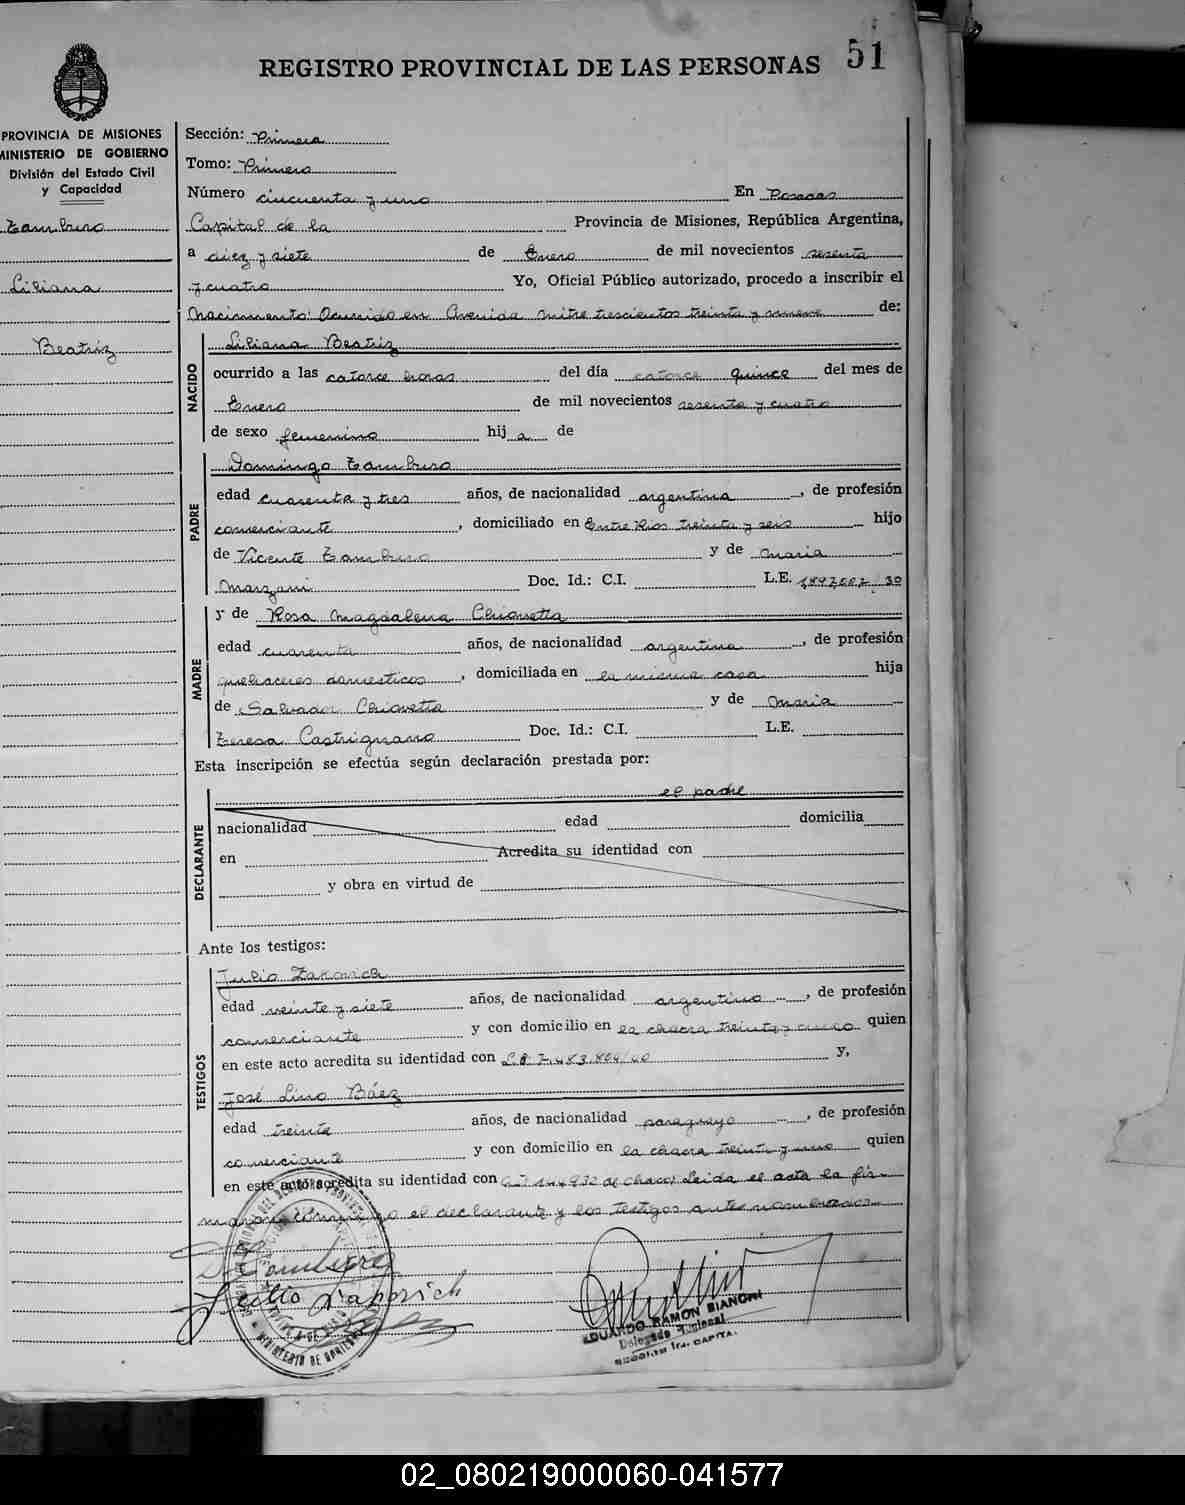 REGISTRO PROVINCIAL DE LAS PERSONAS 51
PROVINCIA DE MISIONES
MINISTERIO DE GOBIERNO
División del Estado Civil
y Capacidad
Zamburo
Liliana
Beatriz
Sección: Primera
Tomo: Primero
Número cincuenta y uno En Posadas
Capital de la Provincia de Misiones, República Argentina,
a diez y siete de Enero de mil novecientos sesenta
y cuatro Yo, Oficial Público autorizado, procedo a inscribir el
Nacimiento Ocurrido en Avenida Mitre trescientos treinta y nueve de:
NACIDO
Liliana Beatriz
ocurrido a las catorce horas del día catorce quince del mes de
Enero de mil novecientos sesenta y cuatro
de sexo femenino hija de
PADRE
Domingo Zamburo
edad cuarenta y tres años, de nacionalidad argentina, de profesión
comerciante, domiciliado en Entre Rios treinta y seis hijo
de Vicente Zamburo y de Maria
Marzani Doc. Id.: C.I. L.E.
MADRE
y de Rosa Magdalena Chiovetta
edad cuarenta años, de nacionalidad argentina, de profesión
quehaceres domesticos, domiciliada en la misma casa hija
de Salvador Chiovetta y de Maria
Teresa Castrignano Doc. Id.: C.I. L.E.
Esta inscripción se efectúa según declaración prestada por:
DECLARANTE
el padre
nacionalidad edad domicilia
en Acredita su identidad con
y obra en virtud de
Ante los testigos:
TESTIGOS
Julio Zakovich
edad veinte y siete años, de nacionalidad argentino, de profesión
comerciante y con domicilio en la chacra treinta y cinco quien
en este acto acredita su identidad con y,
José Lino Báez
edad treinta años, de nacionalidad paraguayo, de profesión
comerciante y con domicilio en la chacra treinta y uno quien
en este acto acredita su identidad con de Chaco; Leida el acta la fir-
maron conmigo el declarante y los testigos antes nombrados
EDUARDO RAMON BIANCHI
Delegado Regional
02_080219000060-041577